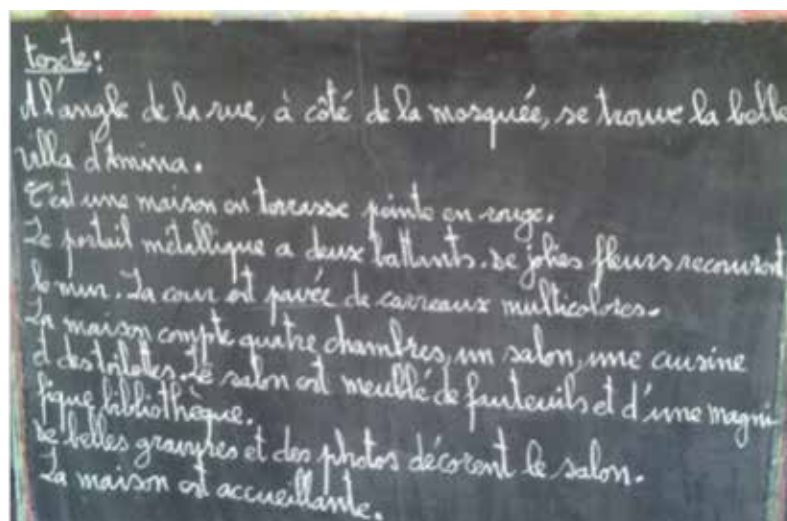 texte:
A l'angle de la rue, à côté de la mosquée, se trouve la belle
villa d'Amina.
C'est une maison en terrasse peinte en rouge.
Le portail métallique a deux battants. De jolies fleurs recouvrent
le mur. La cour est pavée de carreaux multicolores.
La maison compte quatre chambres, un salon, une cuisine
et des toilettes. Le salon est meublé de fauteuils et d'une magni
fique bibliothèque.
De belles gravures et des photos décorent le salon.
La maison est accueillante.